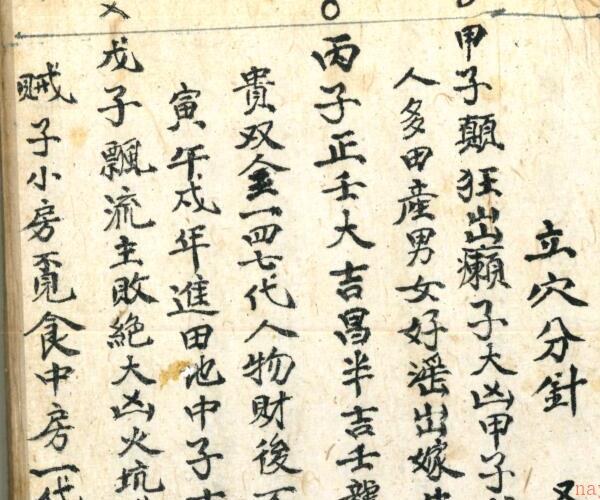 立穴分針
甲子顛狂出癩子大凶甲子
人多田產男女好滛出嫁
丙子正壬大吉昌半吉壬龍
貴双全一四七代人物財後
寅午戌年進田地中子
戊子飄流主敗絕大凶火坑
賊子小房覔食中房一代